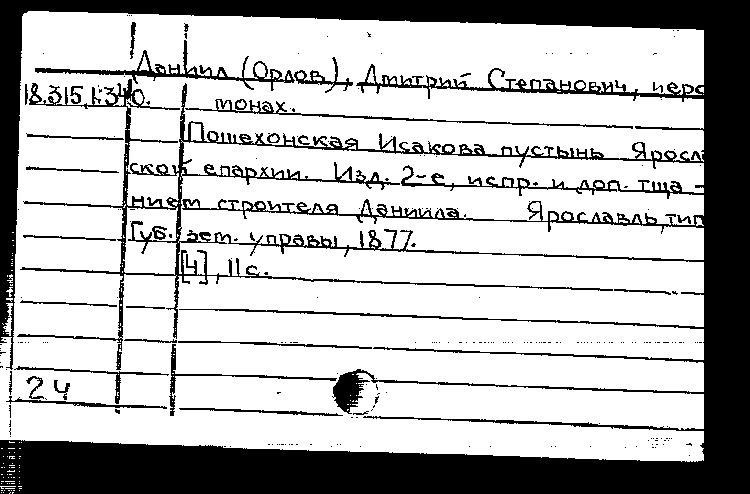 Даниил (Орлов), Дмитрий Степанович, иеро
18.315.1.340. монах.
Пошехонская Исакова пустынь Яросла
ской епархии. Изд. 2-е, испр. и доп. тща-
нием строителя Даниила. Ярославль, тип
Губ. зем. управы, 1877.
[4], 11 с.
24